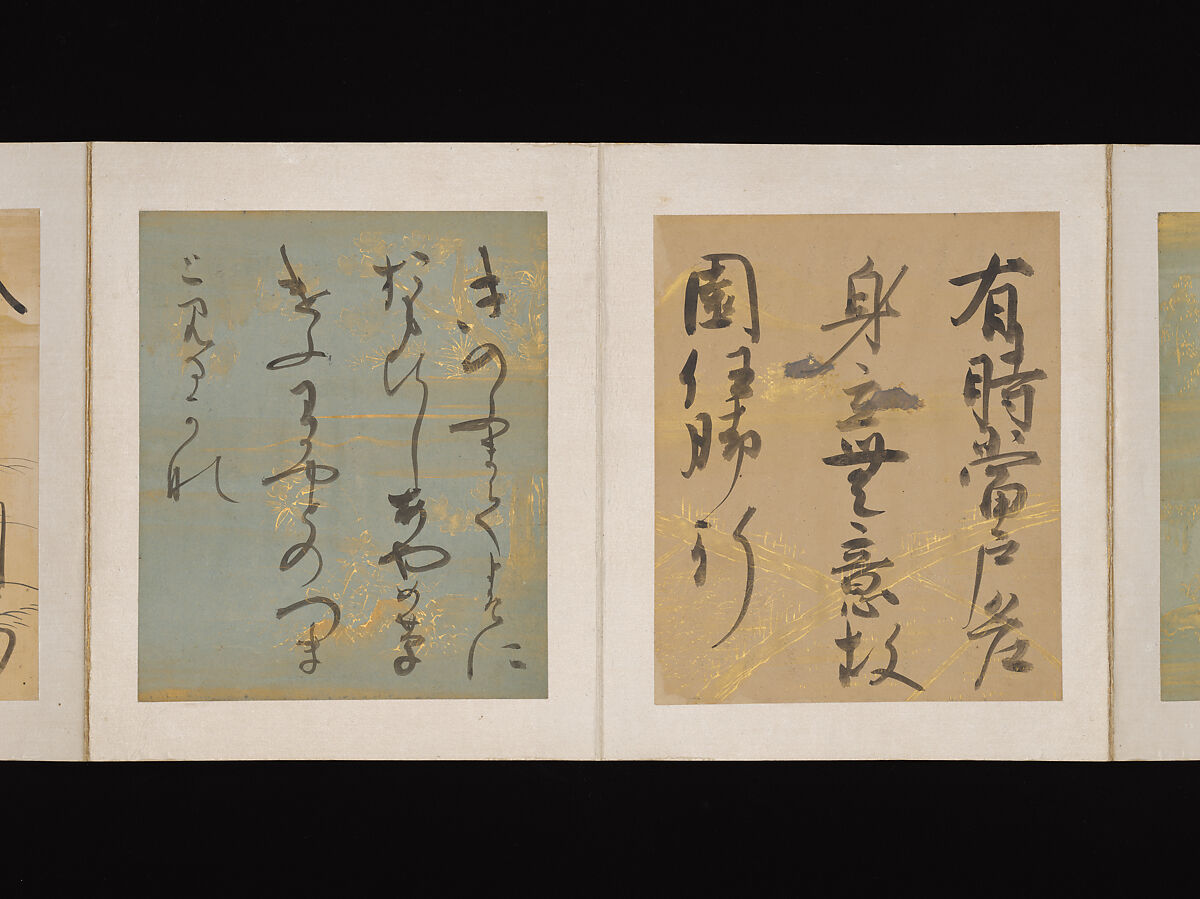 有時當戸危
身立無意故
園任脚行
きのふまてよそに
おもひしあやめ草
けふわかやとのつま
と見るかな